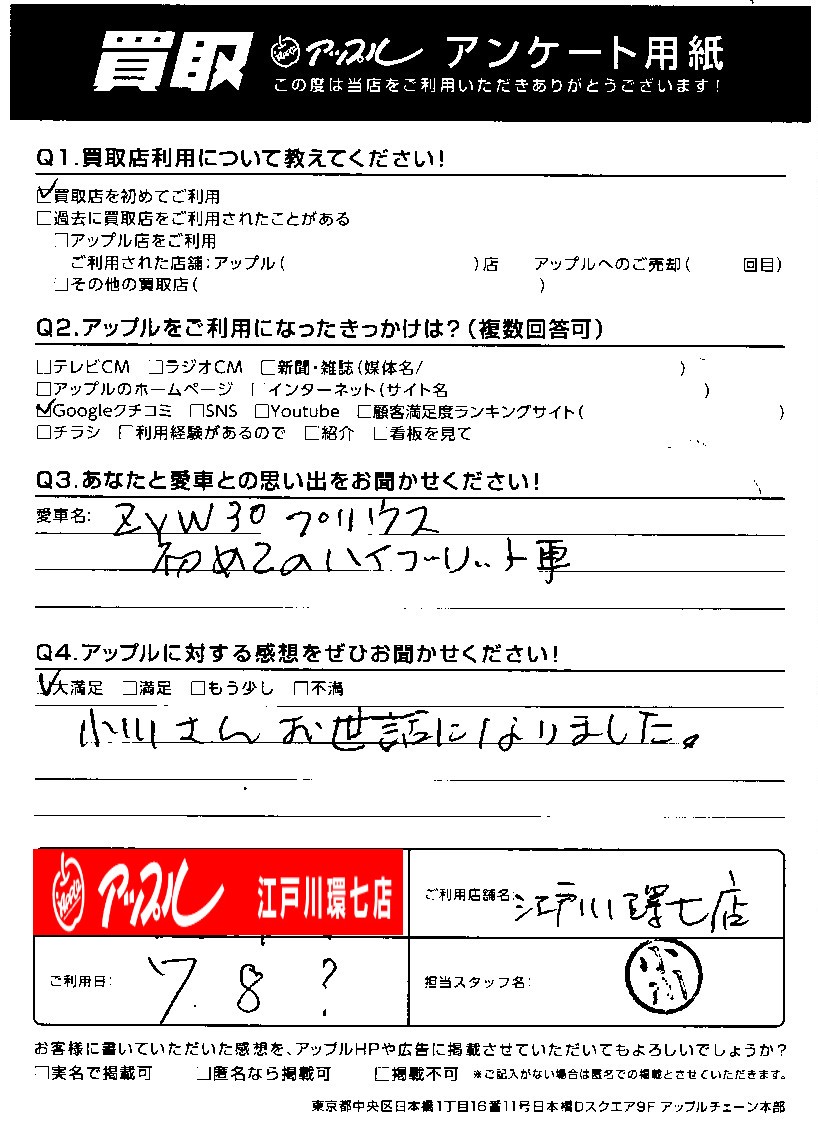 買取 Apple アップル アンケート用紙
この度は当店をご利用いただきありがとうございます!
Q1.買取店利用について教えてください!
☑買取店を初めてご利用
□過去に買取店をご利用されたことがある
□アップル店をご利用
ご利用された店舗:アップル( )店 アップルへのご売却( 回目)
□その他の買取店( )
Q2.アップルをご利用になったきっかけは?(複数回答可)
□テレビCM □ラジオCM □新聞・雑誌(媒体名/ )
□アップルのホームページ □インターネット(サイト名 )
☑Googleクチコミ □SNS □Youtube □顧客満足度ランキングサイト( )
□チラシ □利用経験があるので □紹介 □看板を見て
Q3.あなたと愛車との思い出をお聞かせください!
愛車名: ZVW30 プリウス
初めてのハイブリット車
Q4.アップルに対する感想をぜひお聞かせください!
☑大満足 □満足 □もう少し □不満
小川さんお世話になりました。
Apple アップル 江戸川環七店
ご利用店舗名: 江戸川環七店
ご利用日: 7 8 ?
担当スタッフ名: 小川
お客様に書いていただいた感想を、アップルHPや広告に掲載させていただいてもよろしいでしょうか?
□実名で掲載可 □匿名なら掲載可 □掲載不可 ※ご記入がない場合は匿名での掲載とさせていただきます。
東京都中央区日本橋1丁目16番11号日本橋Dスクエア9F アップルチェーン本部